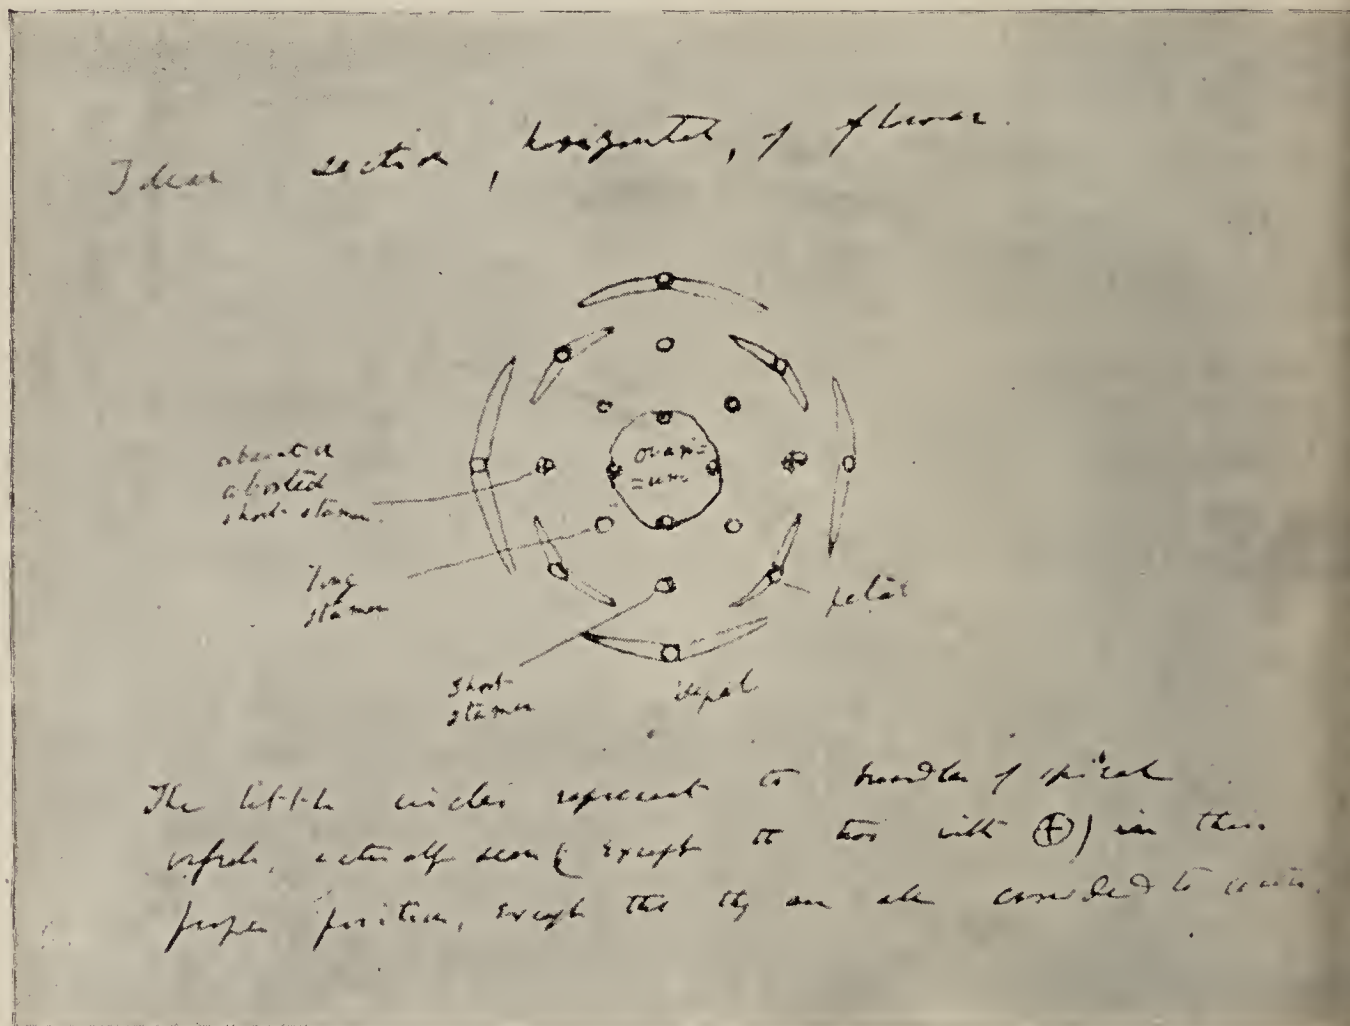 Ideal section, horizontal, of flower.
ovari=
=um
aborted
short stamen
long
stamen
petal
short
stamen
sepal
The little circles represent the bundles of spiral
vessels, actually seen (except the two with ⊕) in their
proper position, except that they are all crowded to centre.